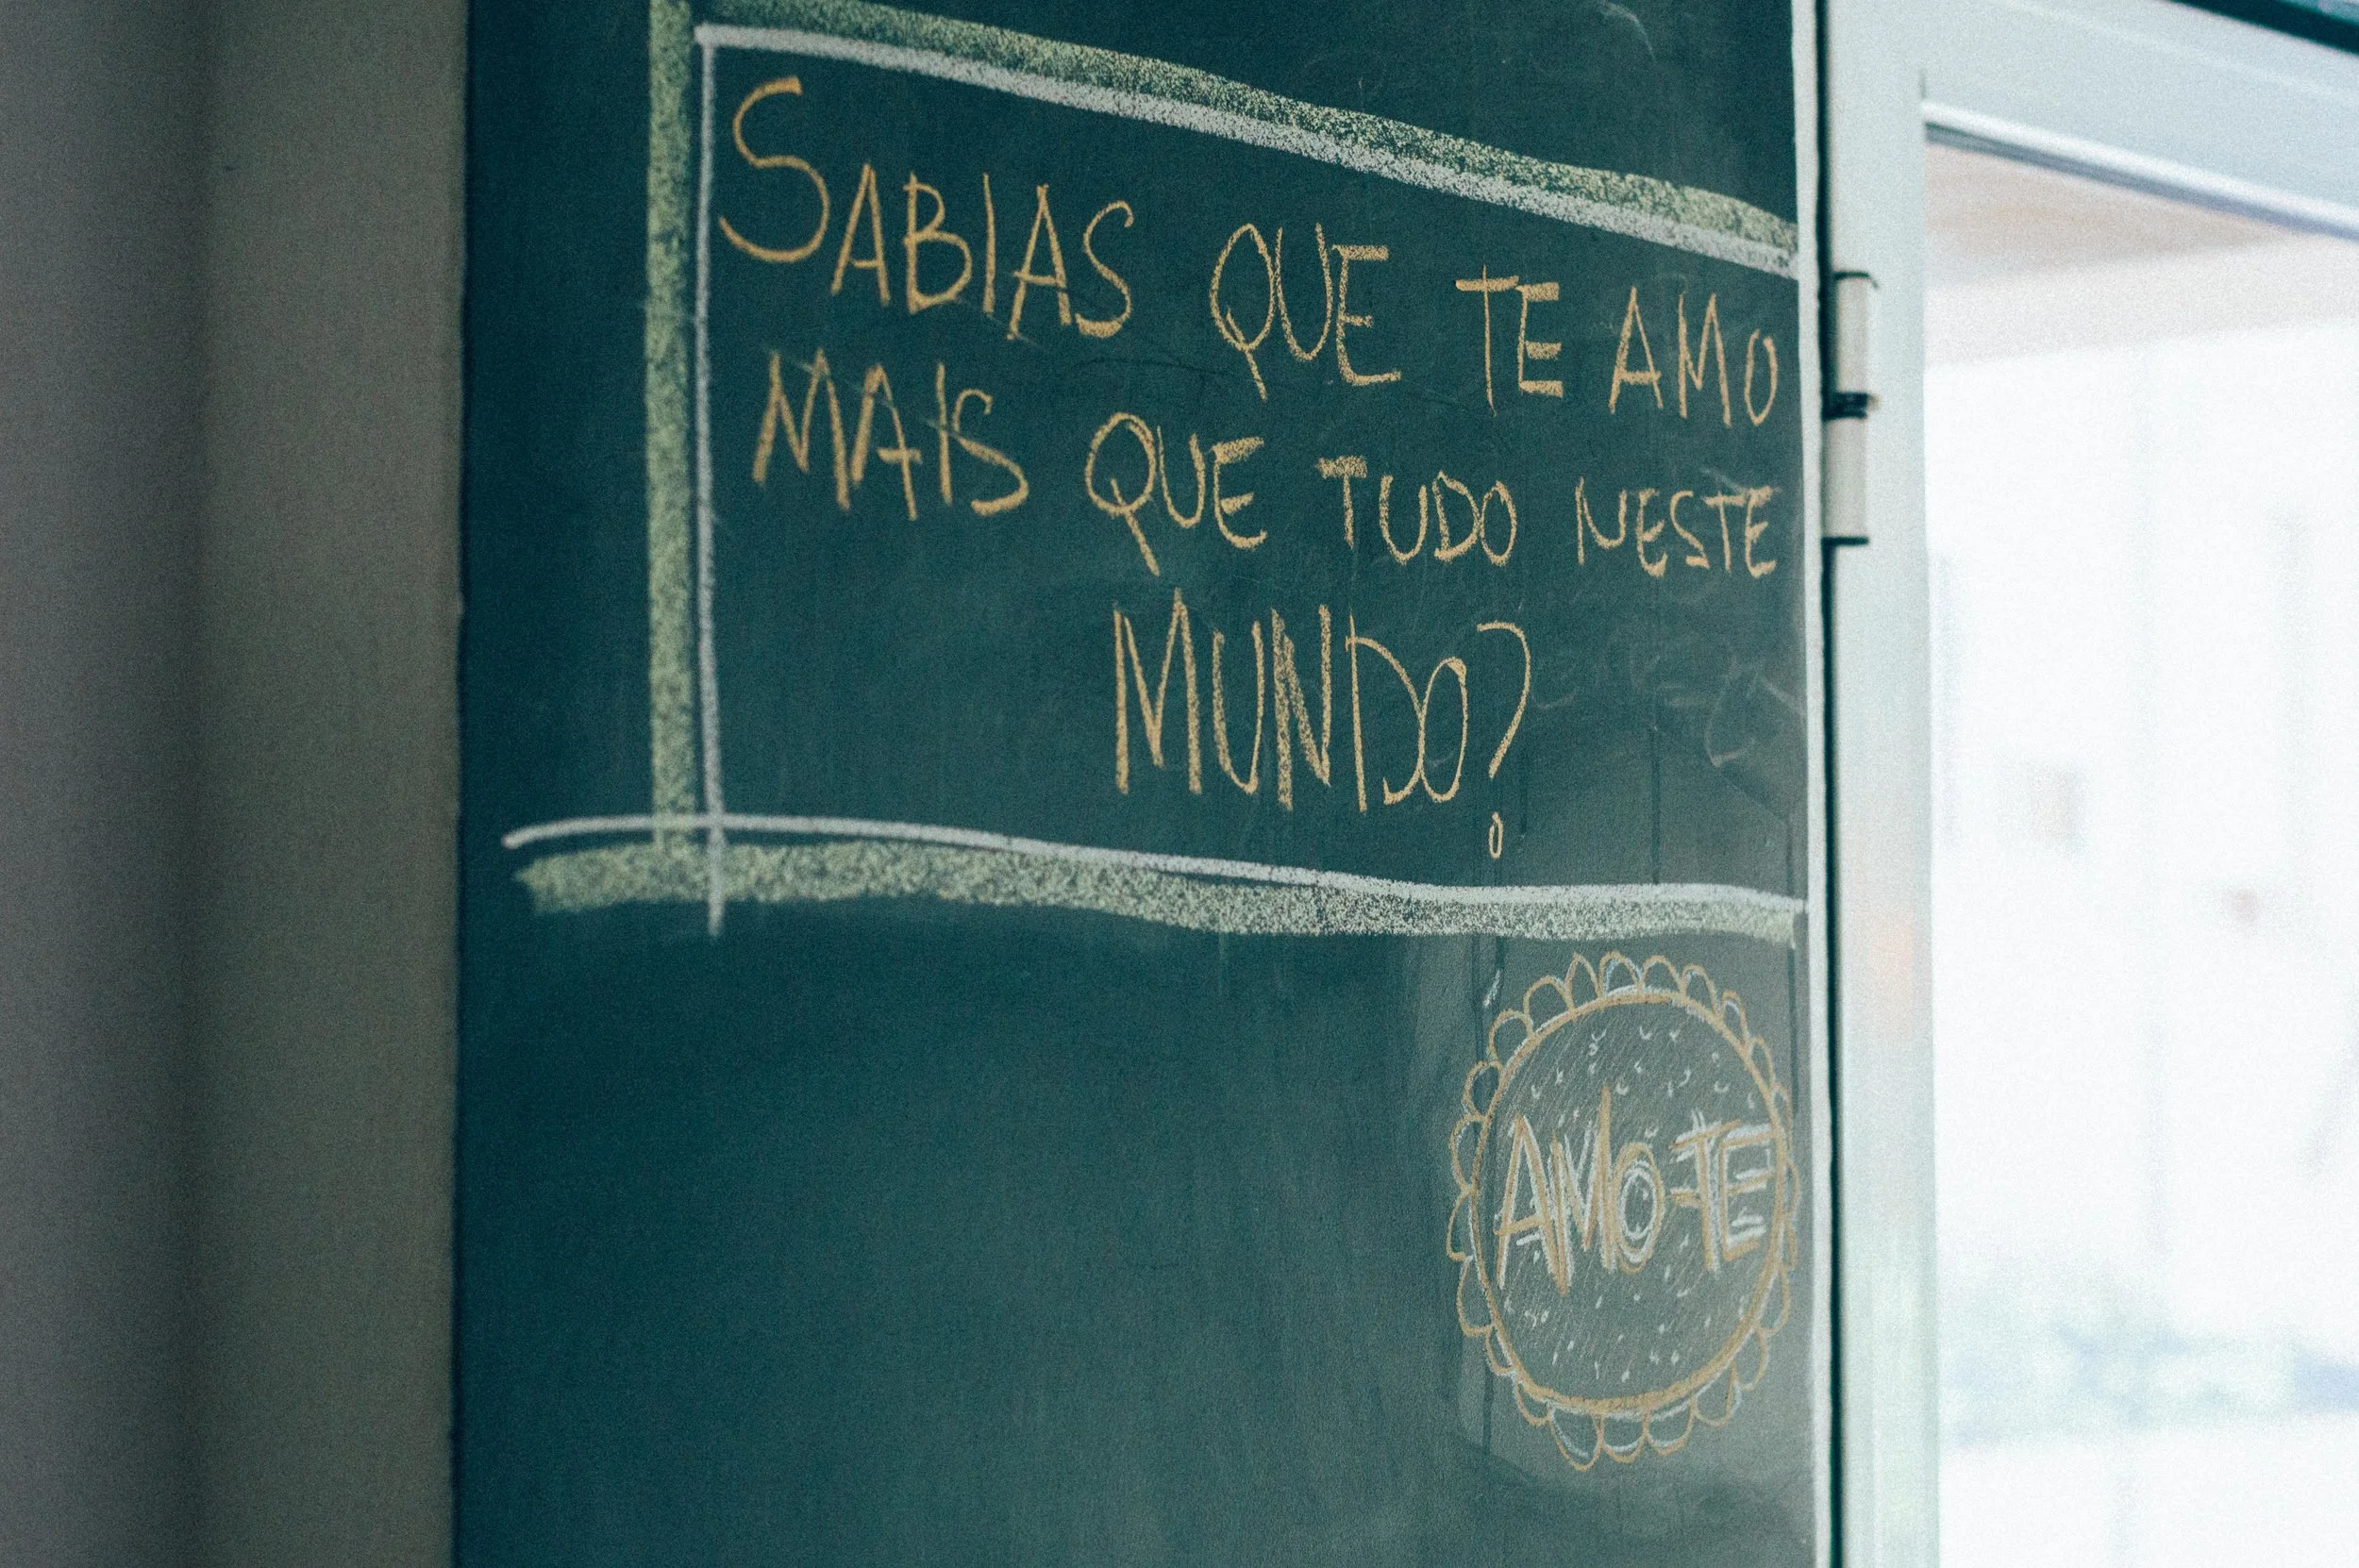 SABIAS QUE TE AMO
MAIS QUE TUDO NESTE
MUNDO?
AMO-TE